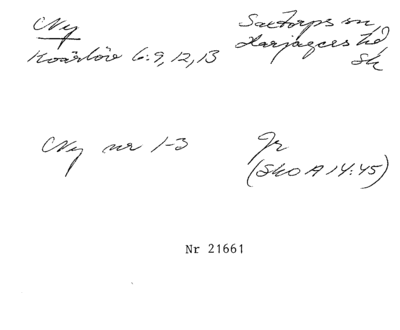 Ny
Kvärlöv 6:9, 12, 13
Saxtorps sn,
Harjagers hd
Sk
Ny nr 1-3
Gr
(SkO A 14:45)
Nr 21661